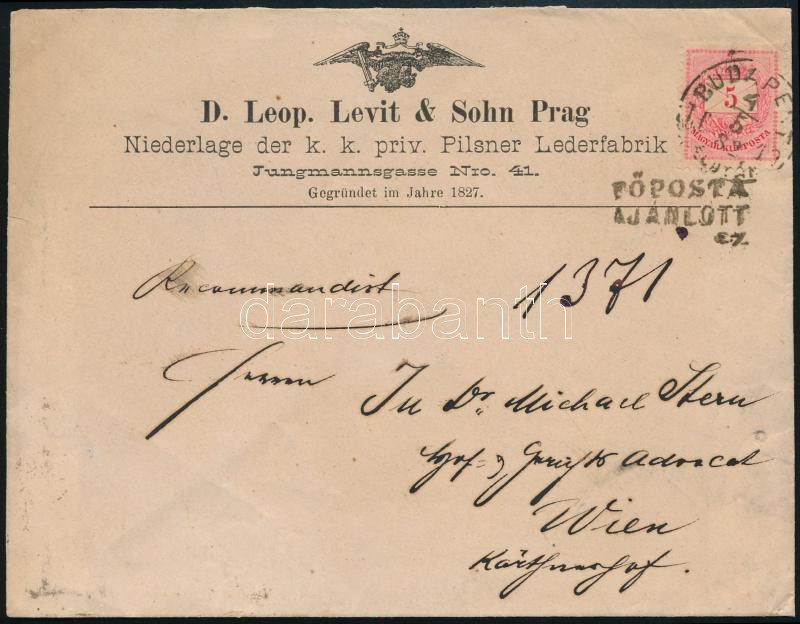 D. Leop. Levit & Sohn Prag
Niederlage der k. k. priv. Pilsner Lederfabrik
Jungmannsgasse Nro. 41.
Gegründet im Jahre 1827.
5
MAGYAR KIR. POSTA
BUDAPEST
FŐPOSTA
AJÁNLOTT
Recommandirt
1371
darabanth
Herren
Ju Dr. Michael Stern
Hof- & Gerichts Advocat
Wien
Kärthnerhof.